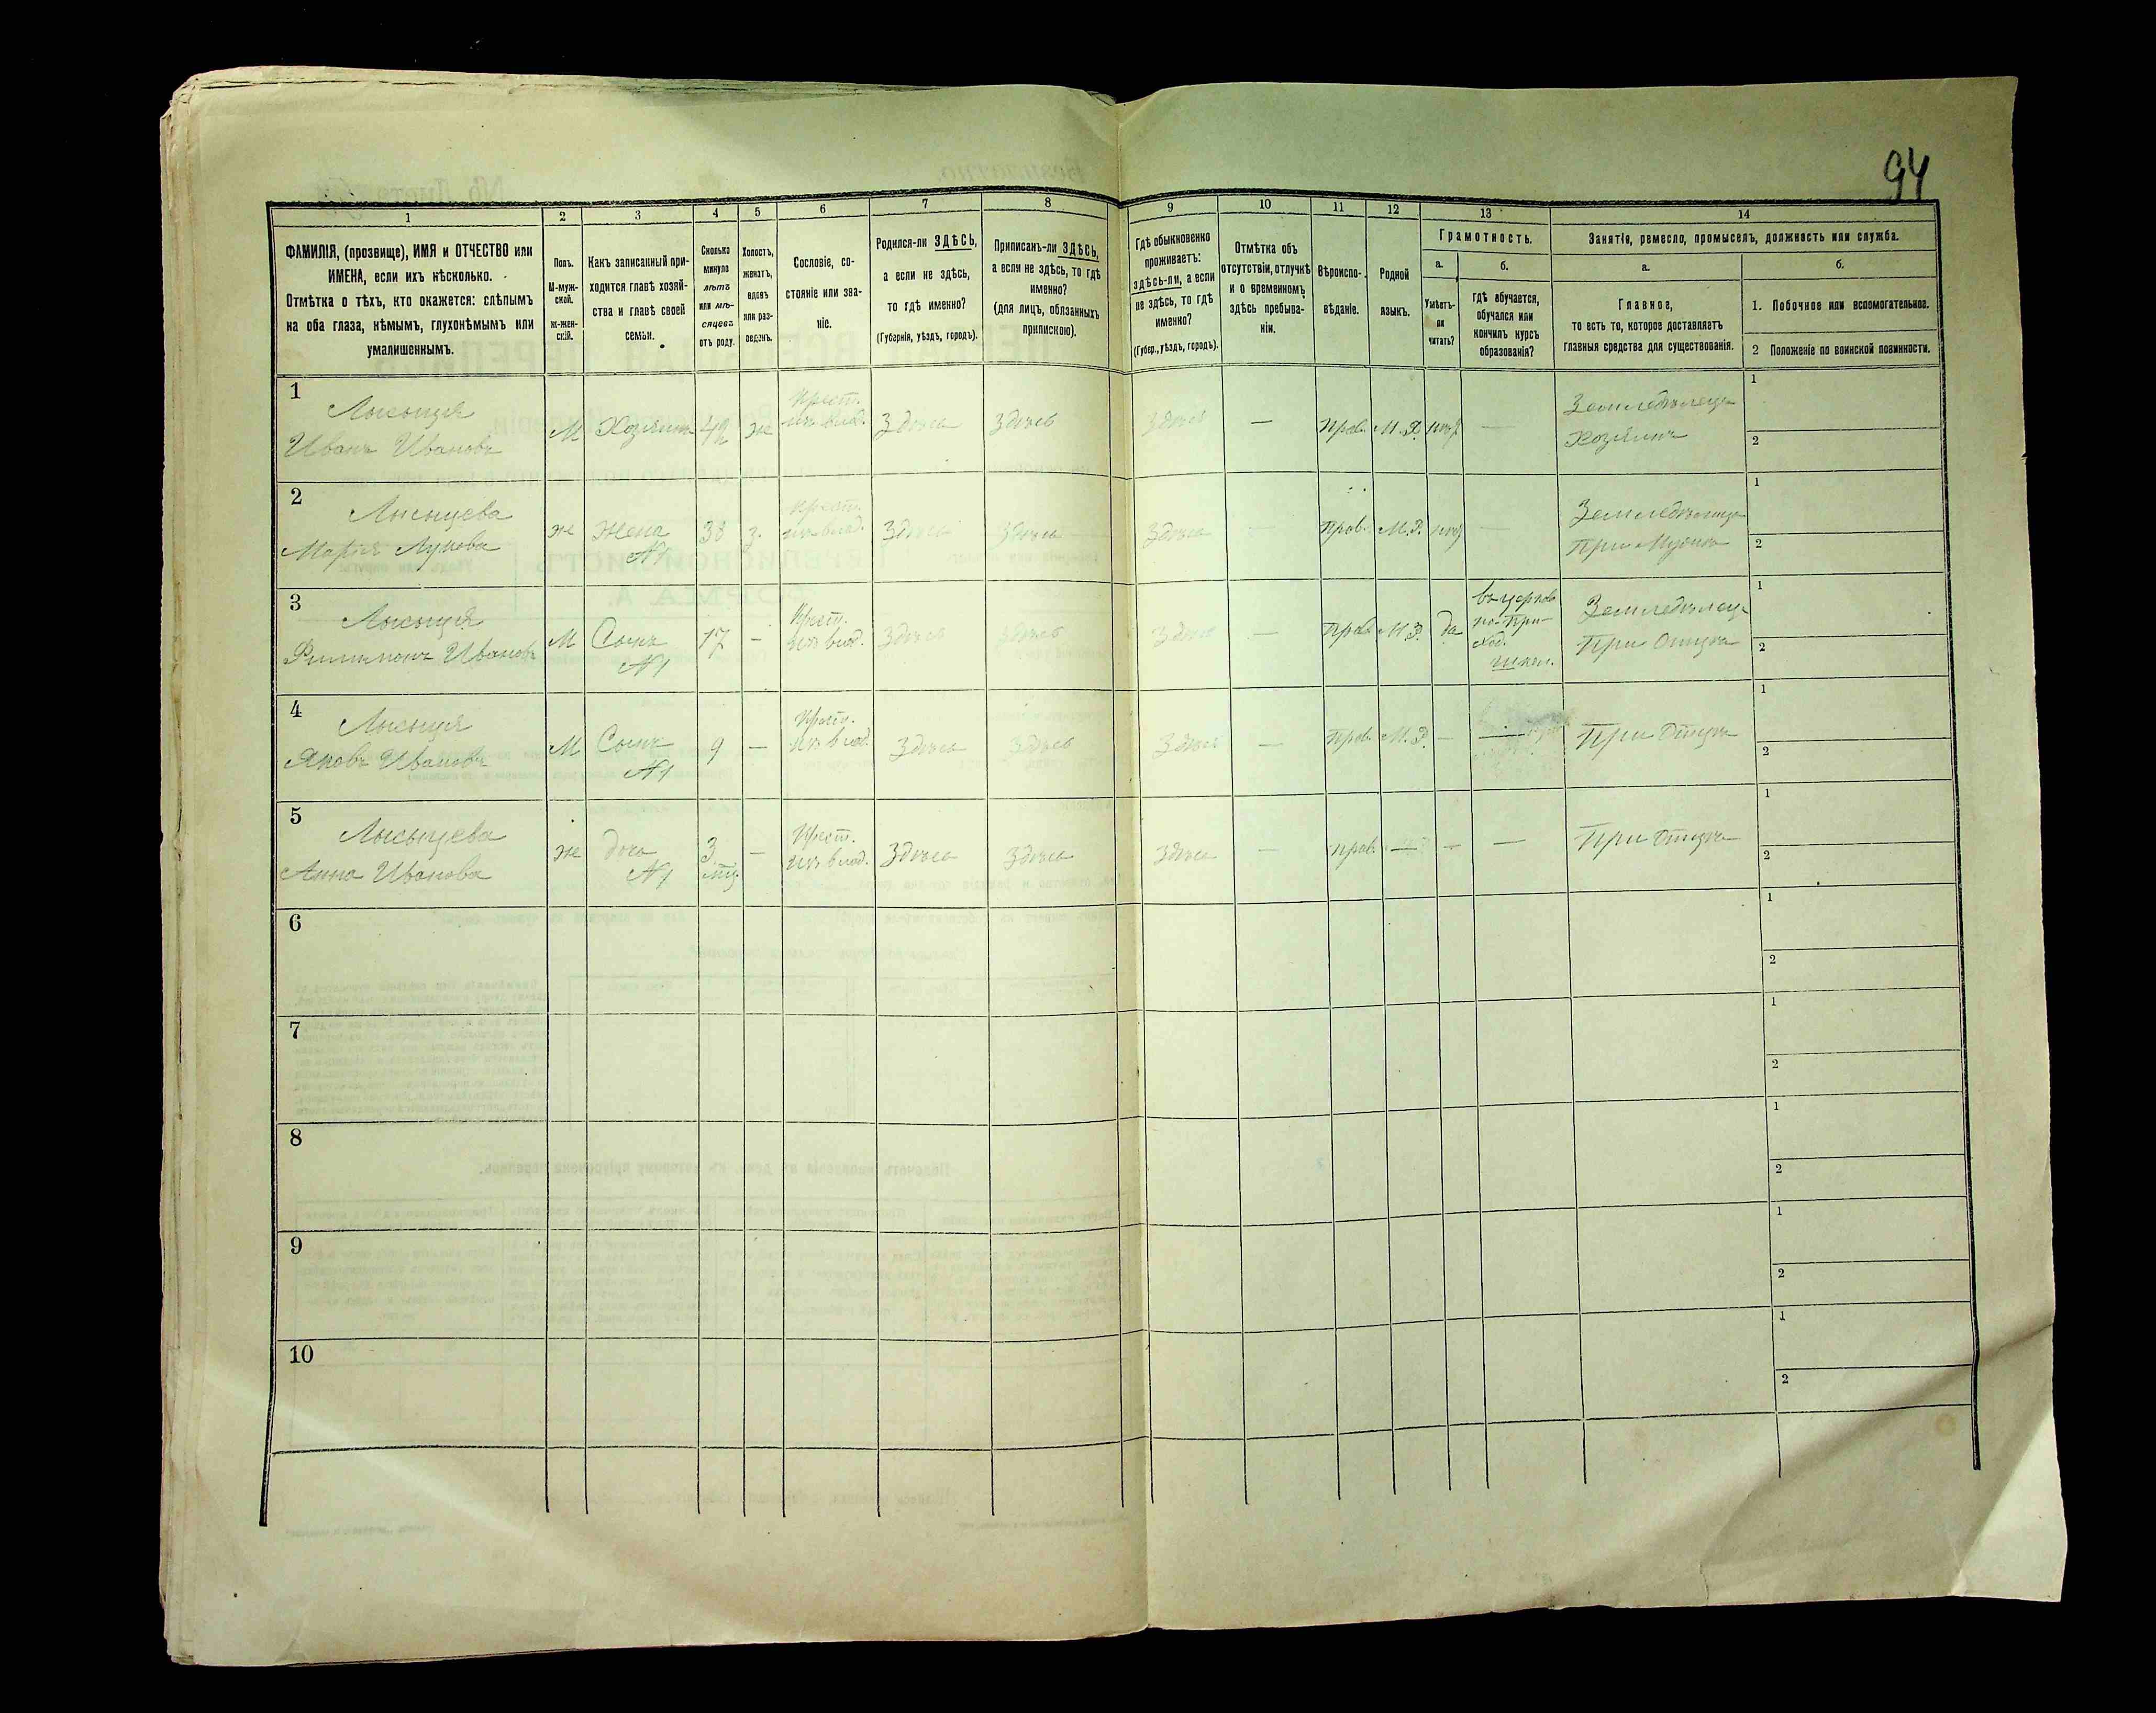 94
1 2 3 4 5 6 7 8 9 10 11 12 13 14
ФАМИЛІЯ, (прозвище), ИМЯ и ОТЧЕСТВО или
ИМЕНА, если ихъ нѣсколько.
Отмѣтка о тѣхъ, кто окажется: слѣпымъ
на оба глаза, нѣмымъ, глухонѣмымъ или
умалишеннымъ.
Полъ.
М-муж-
ской.
ж-жен-
скій.
Какъ записанный при-
ходится главѣ хозяй-
ства и главѣ своей
семьи.
Сколько
минуло
лѣтъ
или мѣ-
сяцевъ
отъ роду.
Холостъ,
женатъ,
вдовъ
или раз-
веденъ.
Сословіе, со-
стояніе или зва-
ніе.
Родился-ли ЗДѢСЬ,
а если не здѣсь,
то гдѣ именно?
(Губернія, уѣздъ, городъ).
Приписанъ-ли ЗДѢСЬ,
а если не здѣсь, то гдѣ
именно?
(для лицъ, обязанныхъ
припискою).
Гдѣ обыкновенно
проживаетъ:
здѣсь-ли, а если
не здѣсь, то гдѣ
именно?
(Губер., уѣздъ, городъ).
Отмѣтка объ
отсутствіи, отлучкѣ
и о временномъ
здѣсь пребыва-
ніи.
Вѣроиспо-
вѣданіе.
Родной
языкъ.
Грамотность.
а.
Умѣетъ-
ли
читать?
б.
Гдѣ обучается,
обучался или
кончилъ курсъ
образованія?
Занятія, ремесло, промыселъ, должность или служба.
а.
Главное,
то есть то, которое доставляетъ
главныя средства для существованія.
б.
1. Побочное или вспомогательное.
2 Положеніе по воинской повинности.
1
Иванъ Ивановъ
М Хозяинъ 42 ж Крест. изъ влад. Здѣсь Здѣсь Здѣсь — прав. М.Р. нѣт — Земледѣлецъ
Хозяинъ
1
2
2
Марія Лукова
ж Жена 38 з. Крест. изъ влад. Здѣсь Здѣсь Здѣсь — прав. М.Р. нѣт —
N1
При Мужѣ
1
2
3
Филимонъ Ивановъ
М Сынъ 17 — Крест. изъ влад. Здѣсь Здѣсь Здѣсь — прав. М.Р. да
N1
въ церков
но-при-
ход.
школ.
Земледѣлецъ
При Отцѣ
1
2
4
Яковъ Ивановъ
М Сынъ 9 — Крест. изъ влад. Здѣсь Здѣсь Здѣсь — прав. М.Р. — При Отцѣ
N1
1
2
5
Анна Иванова
ж дочь 3 — Крест. изъ влад. Здѣсь Здѣсь Здѣсь — прав. — — — При Отцѣ
N1
1
2
6
1
2
7
1
2
8
1
2
9
1
2
10
1
2